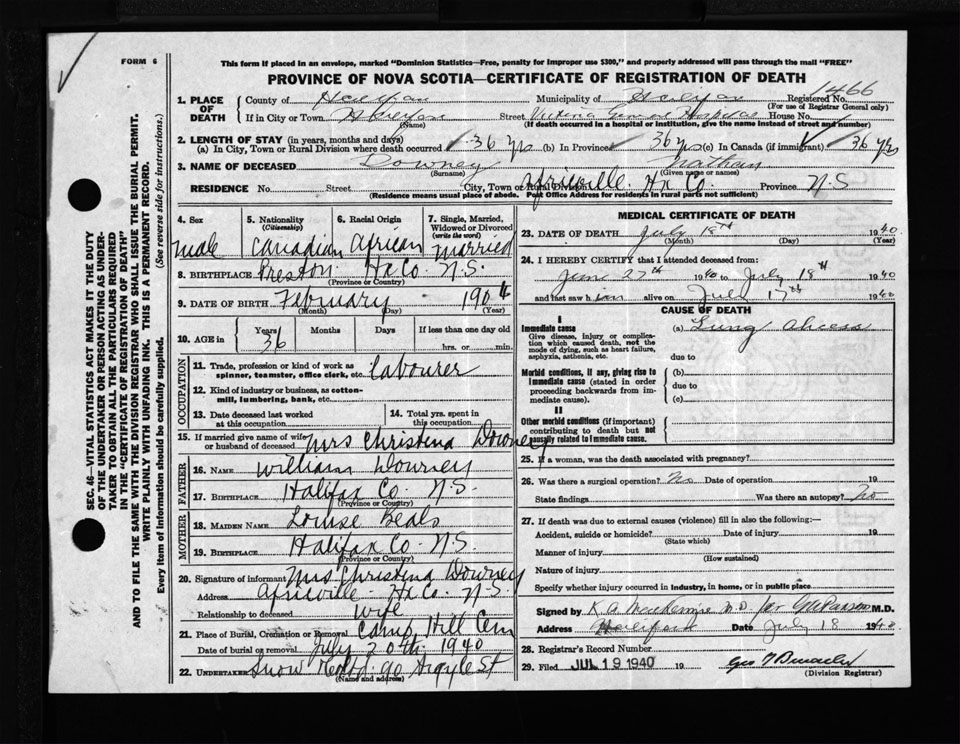 FORM 6
This form if placed in an envelope, marked "Dominion Statistics—Free, penalty for improper use $300," and properly addressed will pass through the mail "FREE"
PROVINCE OF NOVA SCOTIA—CERTIFICATE OF REGISTRATION OF DEATH
1. PLACE OF DEATH County of Halifax Municipality of Halifax Registered No. 1466
(For use of Registrar General only)
If in City or Town Halifax (Name) Street Victoria General Hospital House No.
(If death occurred in a hospital or institution, give the name instead of street and number)
2. LENGTH OF STAY (in years, months and days)
(a) In City, Town or Rural Division where death occurred 36 yrs (b) in Province 36 yrs (c) In Canada (if immigrant) 36 yrs
3. NAME OF DECEASED Downey Nathan
(Surname) (Given name or names)
RESIDENCE No. Street City, Town or Rural Division Africville Hx Co. Province N.S
(Residence means usual place of abode. Post Office Address for residents in rural parts not sufficient)
4. Sex male
5. Nationality (Citizenship) Canadian
6. Racial Origin African
7. Single, Married, Widowed or Divorced (write the word) married
8. BIRTHPLACE Preston Hx Co. N.S.
(Province or Country)
9. DATE OF BIRTH February 1904
(Month) (Day) (Year)
10. AGE in Years 36 Months Days If less than one day old hrs. or min.
OCCUPATION
11. Trade, profession or kind of work as spinner, teamster, office clerk, etc. labourer
12. Kind of industry or business, as cotton-mill, lumbering, bank, etc.
13. Date deceased last worked at this occupation
14. Total yrs. spent in this occupation
15. If married give name of wife or husband of deceased Mrs Christena Downey
FATHER
16. NAME William Downey
17. BIRTHPLACE Halifax Co. N.S.
(Province or Country)
MOTHER
18. MAIDEN NAME Louise Beals
19. BIRTHPLACE Halifax Co. N.S.
(Province or Country)
20. Signature of informant Mrs Christena Downey
Address Africville Hx Co. N.S.
Relationship to deceased wife
21. Place of Burial, Cremation or Removal Camp Hill Cem
Date of burial or removal July 20th 1940
22. UNDERTAKER Snow 90 Argyle St
(Name and address)
MEDICAL CERTIFICATE OF DEATH
23. DATE OF DEATH July 18th 1940
(Month) (Day) (Year)
24. I HEREBY CERTIFY that I attended deceased from:
June 27th 1940 to July 18th 1940
and last saw him alive on July 17th 1940
CAUSE OF DEATH
I
Immediate cause
Give disease, injury or complication which caused death, not the mode of dying, such as heart failure, asphyxia, asthenia, etc.
(a) Lung Abcess
due to
Morbid conditions, if any, giving rise to immediate cause (stated in order proceeding backwards from immediate cause).
(b)
due to
(c)
II
Other morbid conditions (if important) contributing to death but not causally related to immediate cause.
25. If a woman, was the death associated with pregnancy?
26. Was there a surgical operation? No Date of operation 19
State findings Was there an autopsy? No
27. If death was due to external causes (violence) fill in also the following:—
Accident, suicide or homicide? Date of injury 19
(State which)
Manner of injury
(How sustained)
Nature of injury
Specify whether injury occurred in industry, in home, or in public place
Signed by K. A. MacKenzie M.D. for M.D.
Address Halifax Date July 18 1940
28. Registrar's Record Number
29. Filed JUL 19 1940 19
(Division Registrar)
SEC. 46—VITAL STATISTICS ACT MAKES IT THE DUTY
OF THE UNDERTAKER OR PERSON ACTING AS UNDER-
TAKER TO OBTAIN ALL THE PARTICULARS REQUIRED
IN THE "CERTIFICATE OF REGISTRATION OF DEATH"
AND TO FILE THE SAME WITH THE DIVISION REGISTRAR WHO SHALL ISSUE THE BURIAL PERMIT.
WRITE PLAINLY WITH UNFADING INK. THIS IS A PERMANENT RECORD.
Every item of Information should be carefully supplied. (See reverse side for instructions.)